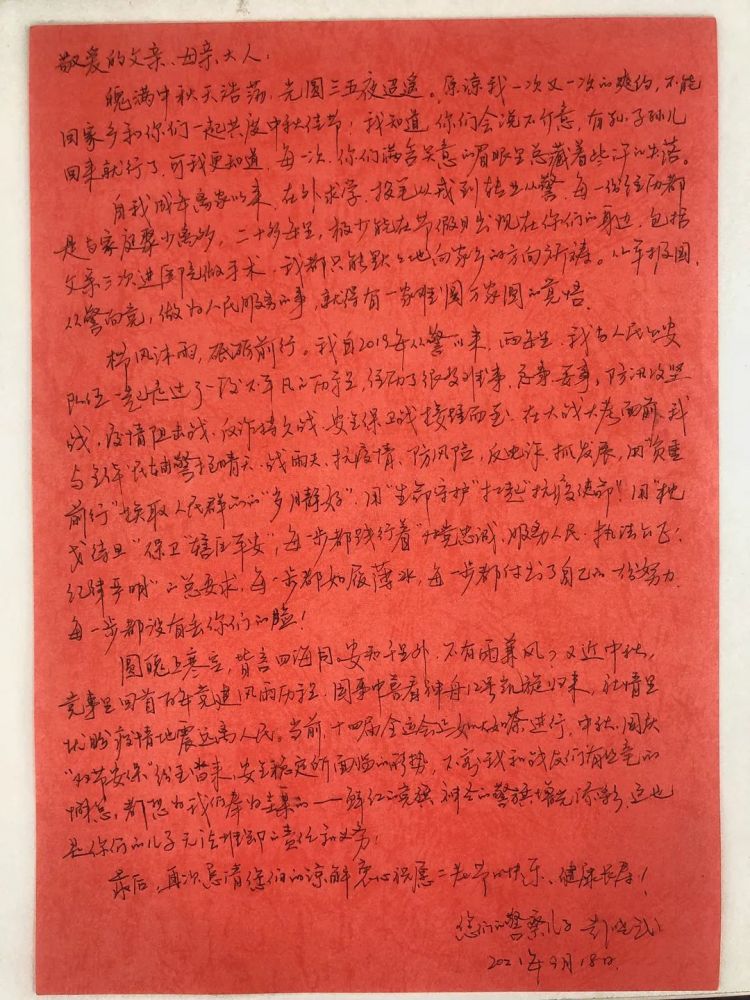 敬爱的父亲、母亲大人：
魄满中秋天浩荡，光圆三五夜迢遥。原谅我一次又一次的爽约，不能
回家乡和你们一起共度中秋佳节！我知道，你们会说不介意，有孙子孙儿
回来就行了，可我更知道，每一次，你们满含笑意的眉眼里总藏着些许的失落。
自我成年离家以来，在外求学、投笔从戎到转业从警，每一份经历都
是与家庭聚少离多，二十多年里，极少能在节假日出现在你们的身边，包括
父亲三次进医院做手术，我都只能默々地向家乡的方向祈祷。从军报国、
从警向党，做为人民服务的事，就得有一家难圆万家圆的觉悟。
栉风沐雨，砥砺前行。我自2019年从警以来，两年里，我与人民公安
队伍一起走过了一段不平凡的历程，经历了很多难事、急事、要事，防汛攻坚
战、疫情阻击战、反诈持久战、安全保卫战接踵而至，在大战大考面前，我
与全体民辅警接晴天、战雨天、抗疫情、防风险、反电诈、抓发展，用“负重
前行”换取人民群众的“岁月静好”，用“生命守护”扛起“抗疫使命”！用“枕
戈待旦”保卫“辖区平安”，每一步都践行着“对党忠诚、服务人民、执法公正、
纪律严明”的总要求，每一步都如履薄冰，每一步都付出了自己的一份努力，
每一步都没有丢你们的脸！
圆魄上寒空，皆言四海同。安知千里外，不有雨兼风？又近中秋，
党事里回首百年党建风雨历程，国事中喜看神舟12号凯旋归来，社情里
忧盼疫情地震远离人民。当前，十四届全运会正如火如荼进行，中秋、国庆
“双节安保”纷至沓来，安全稳定所面临的形势，不容我和战友们有丝毫的
懈怠，都想为我们奉为圭臬的——鲜红的党旗、神圣的警旗增光添彩，这也
是你们的儿子无法推卸的责任和义务！
最后，再次恳请您们的谅解，衷心祝愿二老节日快乐、健康长寿！
您们的警察儿子
2021年9月18日